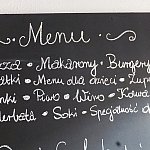 Menu
zza • Makarony • Burgery
atki • Menu dla dzieci • Zup
nki • Piwo • Wino • Kawa
erbata • Soki • Specjalność d